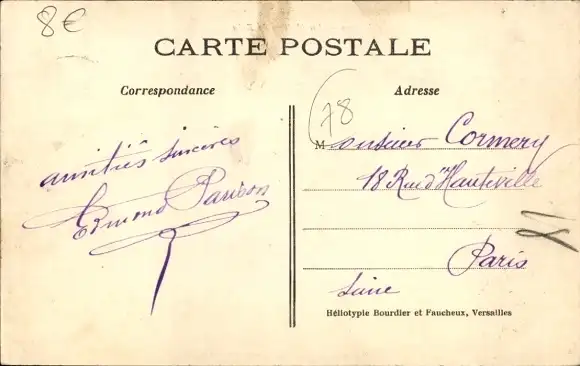 8€
CARTE POSTALE
Correspondance
Adresse
78
amitiés sincères
Edmond Parison
Monsieur Cormery
18 Rue d'Hauteville
Paris
Seine
Héliotypie Bourdier et Faucheux, Versailles